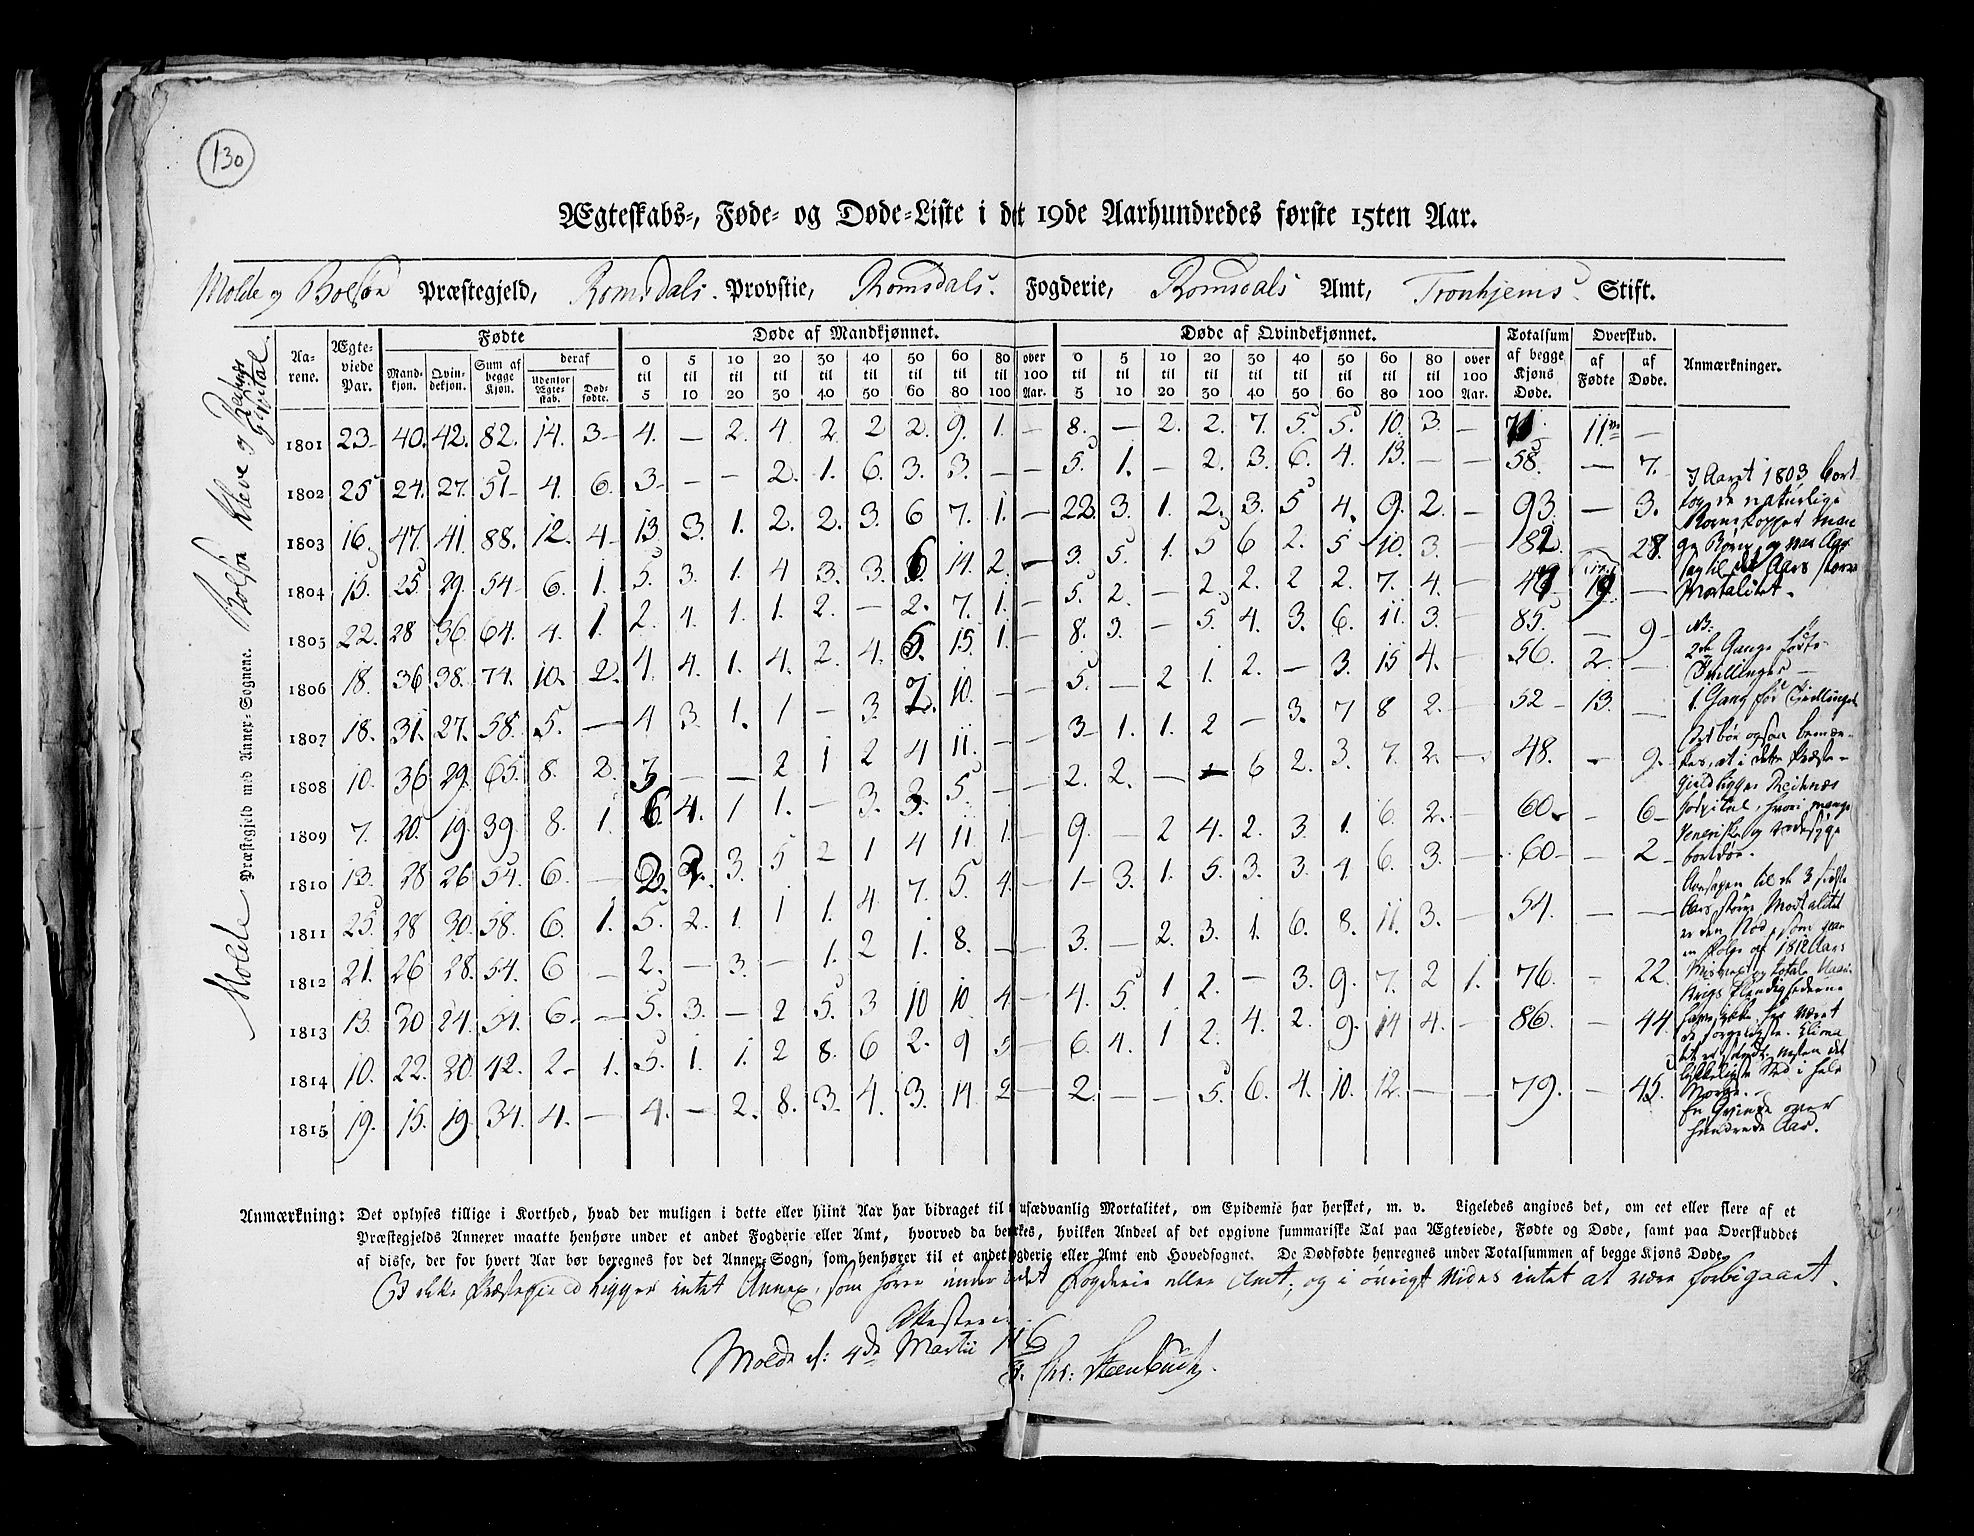 130
Ægteskabs-, Føde- og Døde-Liste i det 19de Aarhundredes første 15ten Aar.
Molde og Bolsøn Præstegjeld, Romsdals Provstie, Romsdals Fogderie, Romsdals Amt, Tronhjems Stift.
Molde Præstegjeld med Annex-Sognene. Bolsøn Kleve og
Aarene. Ægteviede Par. Fødte Døde af Mandkjønnet. Døde af Qvindekjønnet. Totalsum af begge Kjøns Døde. Overskud. Anmærkninger.
Mandkjøn. Qvindekjøn. Sum af begge Kjøn. deraf Udenfor Ægteskab. Dødfødte. af Fødte af Døde.
0 til 5 5 til 10 10 til 20 20 til 30 30 til 40 40 til 50 50 til 60 60 til 80 80 til 100 over 100 Aar. 0 til 5 5 til 10 10 til 20 20 til 30 30 til 40 40 til 50 50 til 60 60 til 80 80 til 100 over 100 Aar.
1801 23 40. 42. 82. 14. 3 4. — 2. 4 2 2 2. 9. 1. — 8. — 2. 2. 7. 5. 5. 10. 3. — 11 —
1802 25 24. 27. 51 4. 6. 3 — — 2. 1. 6. 3. 3. — — 5. 1. — 2. 3. 6. 4. 13. — — 58. — 7.
1803 16. 47. 41. 88. 12. 4 13. 3. 1. 2. 2. 3. 6 7. 1. — 22. 3. 1. 2. 3. 5 4. 9. 2. — 93. — 3.
1804 15. 25. 29. 54 6. 1. 5. 3. 1. 4 3. 3. 14. 2. — 3. 5. 1. 5 6 2. 5 10. 3. — — 28.
1805 22. 28 36. 64. 4. 1. 2. 4. 1. 1. 2. — 2. 7. 1. — 5. 2. — 2. 2. 2 2. 7. 4. — —
1806 18. 36 38. 74. 10. 2. 4. 4. 1. 4. 2. 4. 15. 1. — 8. 3. — 5. 4. 3. 6. 11. 3. — 85. — 9
1807 18. 31. 27. 58. 5. — 4 3. 1. 1 — 3. 10. — — 5. — 2 1. 2. — 3. 15 4. — 56. 2. —
1808 10. 36 29. 65. 8. 2. — — 2 1 2 4 11. — — 3 1. 1. 2 — 3. 7 8 2. — 52 13. —
1809 7. 20. 19. 39. 8. 1. 6. 4. 1 1. — 3. 3. 5. — — 2. 2. — 6 2. 3. 7. 2. — 48. — 9.
1810 13. 28 26 54. 6. — 2. 3. 5 2 1 4 11. 1. — 9. — 2 4. 2. 3. 1. 6. 2. — 60 — 6
1811 25. 28 30. 58. 6. 1. 5. 2. 1 1 1. 4 7. 5. 4. — 1 3. 1. 5. 3. 3. 4. 6. 3. — 60 — 2
1812 21. 26 28. 54. 6 — 2. — 3. — 1. 2 1. 8. — — 3. — 2. 3. 1. 6. 8. 11. 3. — 54. — —
1813 13. 30 24. 54. 6. — 5. 3. — 2 5. 3 10 10. 4 — 4. 5. 1 2. — 3. 9. 7. 2 1. 76. — 22.
1814 10. 22. 20. 42. 2. 1. 5. 1. 1. 2 8. 6 2. 9 5 — 6. 4. 1 2. 4. 2. 9. 14 4. — 86. — 44.
1815 19. 15. 19. 34. 4. — 4. — 2. 8. 3. 4. 3. 14. 2 — 2. — — 5. 6. 4. 10. 12. — — 79. — 45.
I Aaret 1803 bort
tog de naturlige
Mortalitet.
NB.
2de Gange fødte
Tvillinger —
1. Gang fød Tvillinger
Det bør ogsaa bemær-
kes, at i dette Præste-
gield ligger Reitnæs
Hospital, hvori mange
Veneriske og
bortdøe.
Aarsagen til de 3 sidste
Aars større Mortalitet
er den Nød, som var
en Følge af 1812 Aars
En Qvinde over
hundrede Aar.
Anmærkning: Det oplyses tillige i Korthed, hvad der muligen i dette eller hiint Aar har bidraget til usædvanlig Mortalitet, om Epidemie har hersket, m. v. Ligeledes angives det, om eet eller flere af et
Præstegjelds Annexer maatte henhøre under et andet Fogderie eller Amt, hvorved da bemærkes, hvilken Andeel af det opgivne summariske Tal paa Ægteviede, Fødte og Døde, samt paa Overskuddet
af disse, der for hvert Aar bør beregnes for det Annex-Sogn, som henhører til et andet Fogderie eller Amt end Hovedsognet. De Dødfødte henregnes under Totalsummen af begge Kjøns Døde.
I dette Præstegield ligger intet Annex, som hører under andet Fogderie eller Amt, og i øvrigt vides intet at være forbigaaet.
Molde d: 4de Martii
Chr: Steenbuch.